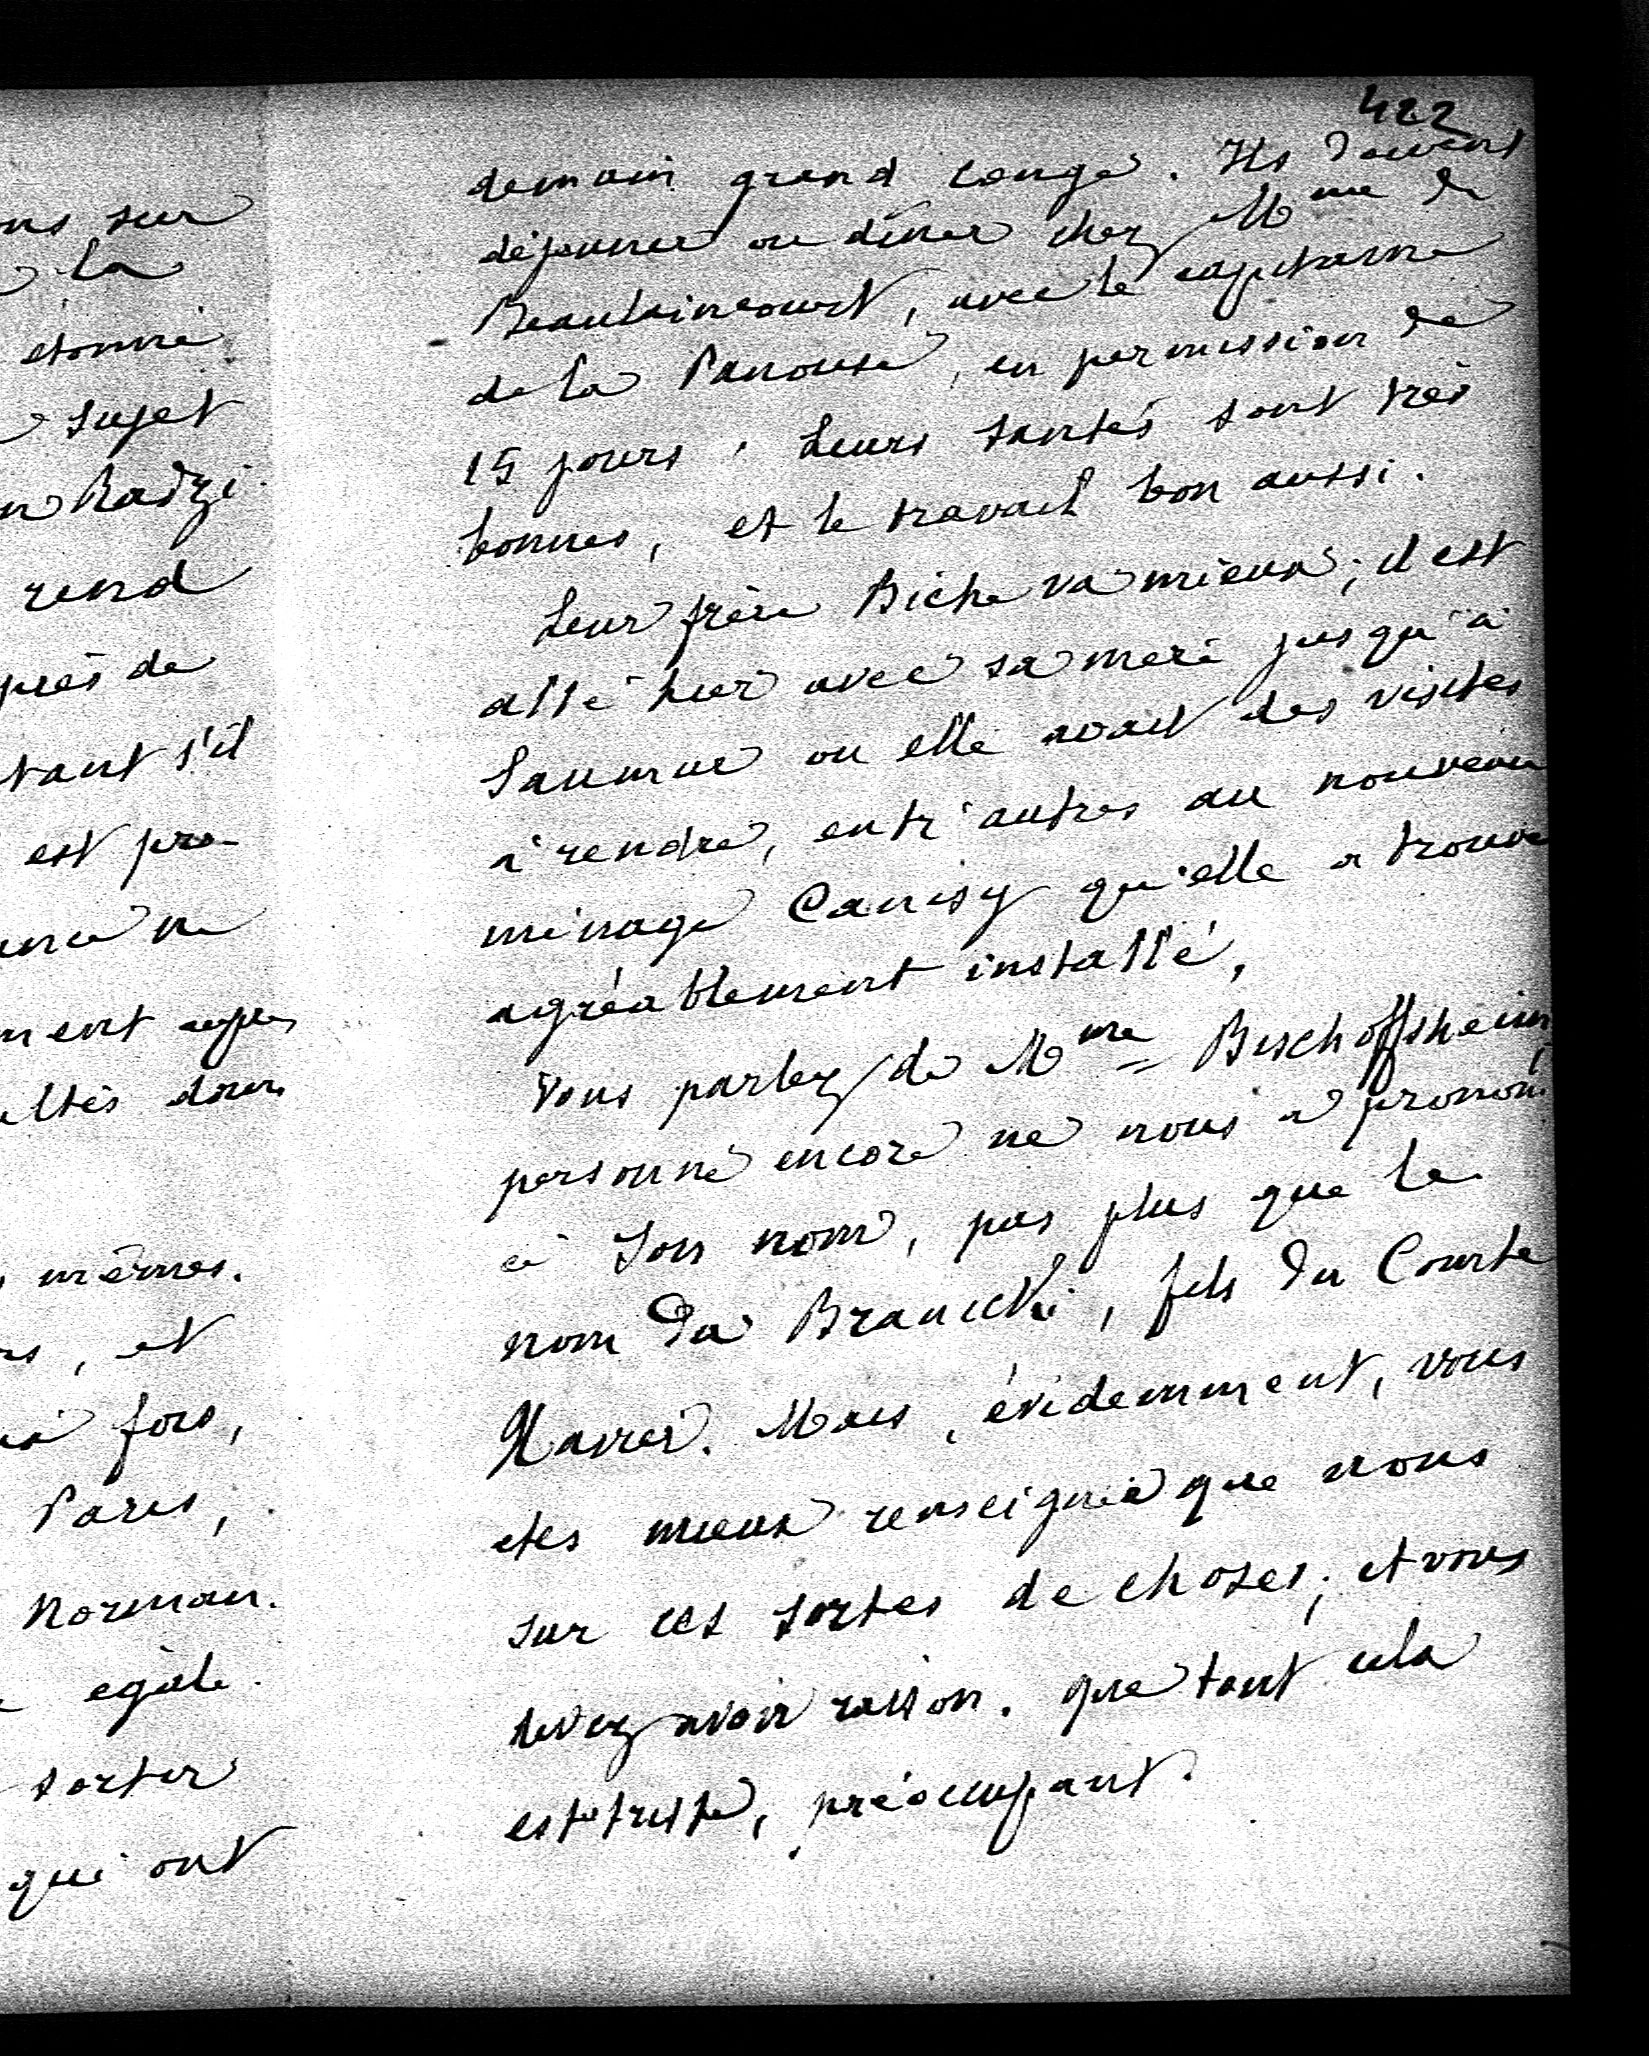 ns sur
la
étonné
sujet
n Radzi
rend
près de
tant s'il
est pro
ne
ment
ultés dans
mêmes.
, et
fois,
Paris,
Norman.
égale.
sortir
qui ont
422
demain grand congé. Ils doivent
déjeuner ou dîner chez Mme de
Beaulaincourt, avec le capitaine
de la Panouse, en permission de
15 jours. Leurs santés sont très
bonnes, et le travail bon aussi.
Leur frère Biche va mieux; il est
allé hier avec sa mère jusqu'à
Saumur ou elle avait des visites
à rendre, entr'autres au nouveau
ménage Canisy qu'elle a trouvé
agréablement installé.
Vous parlez de Mme Bischoffsheim,
personne encore ne nous a prononcé
son nom, pas plus que le
nom du Branicki, fils du Comte
Xavier. Mais, évidemment, vous
etes mieux renseignée que nous
sur ces sortes de choses; et vous
devez avoir raison. que tout cela
est triste, préoccupant.